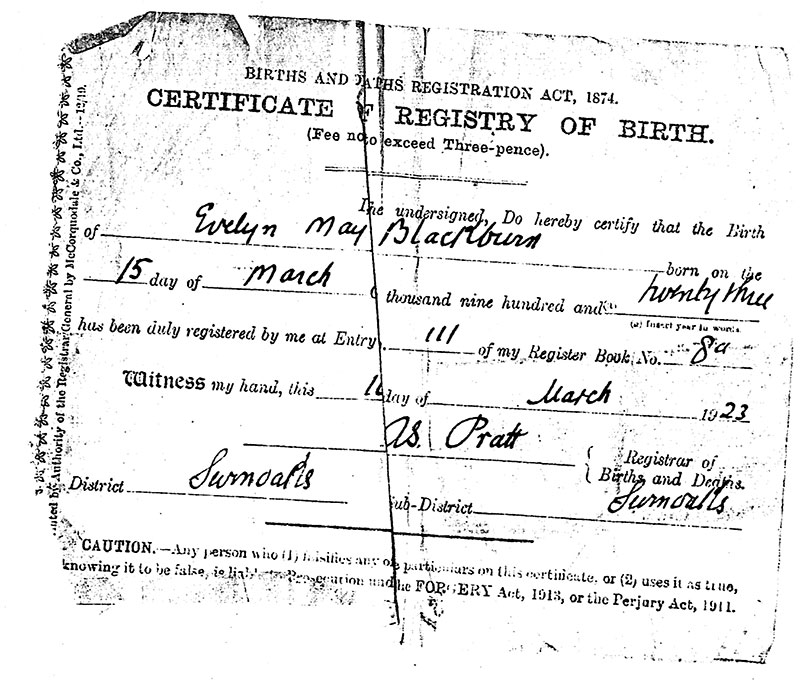 BIRTHS AND DEATHS REGISTRATION ACT, 1874.
CERTIFICATE OF REGISTRY OF BIRTH.
(Fee not to exceed Three-pence).
I the undersigned, Do hereby certify that the Birth
of Evelyn May Blackburn
born on the
15 day of March thousand nine hundred and twenty three
(a) Insert year in words
has been duly registered by me at Entry 111 of my Register Book, No. 8a
Witness my hand, this day of March 1923
Pratt
Registrar of
Births and Deaths.
District
Sub-District
CAUTION.—Any person who (1) falsifies any of the particulars on this certificate, or (2) uses it as true,
knowing it to be false, is liable to Prosecution under the FORGERY Act, 1913, or the Perjury Act, 1911.
Printed by Authority of the Registrar General by McCorquodale & Co., Ltd.